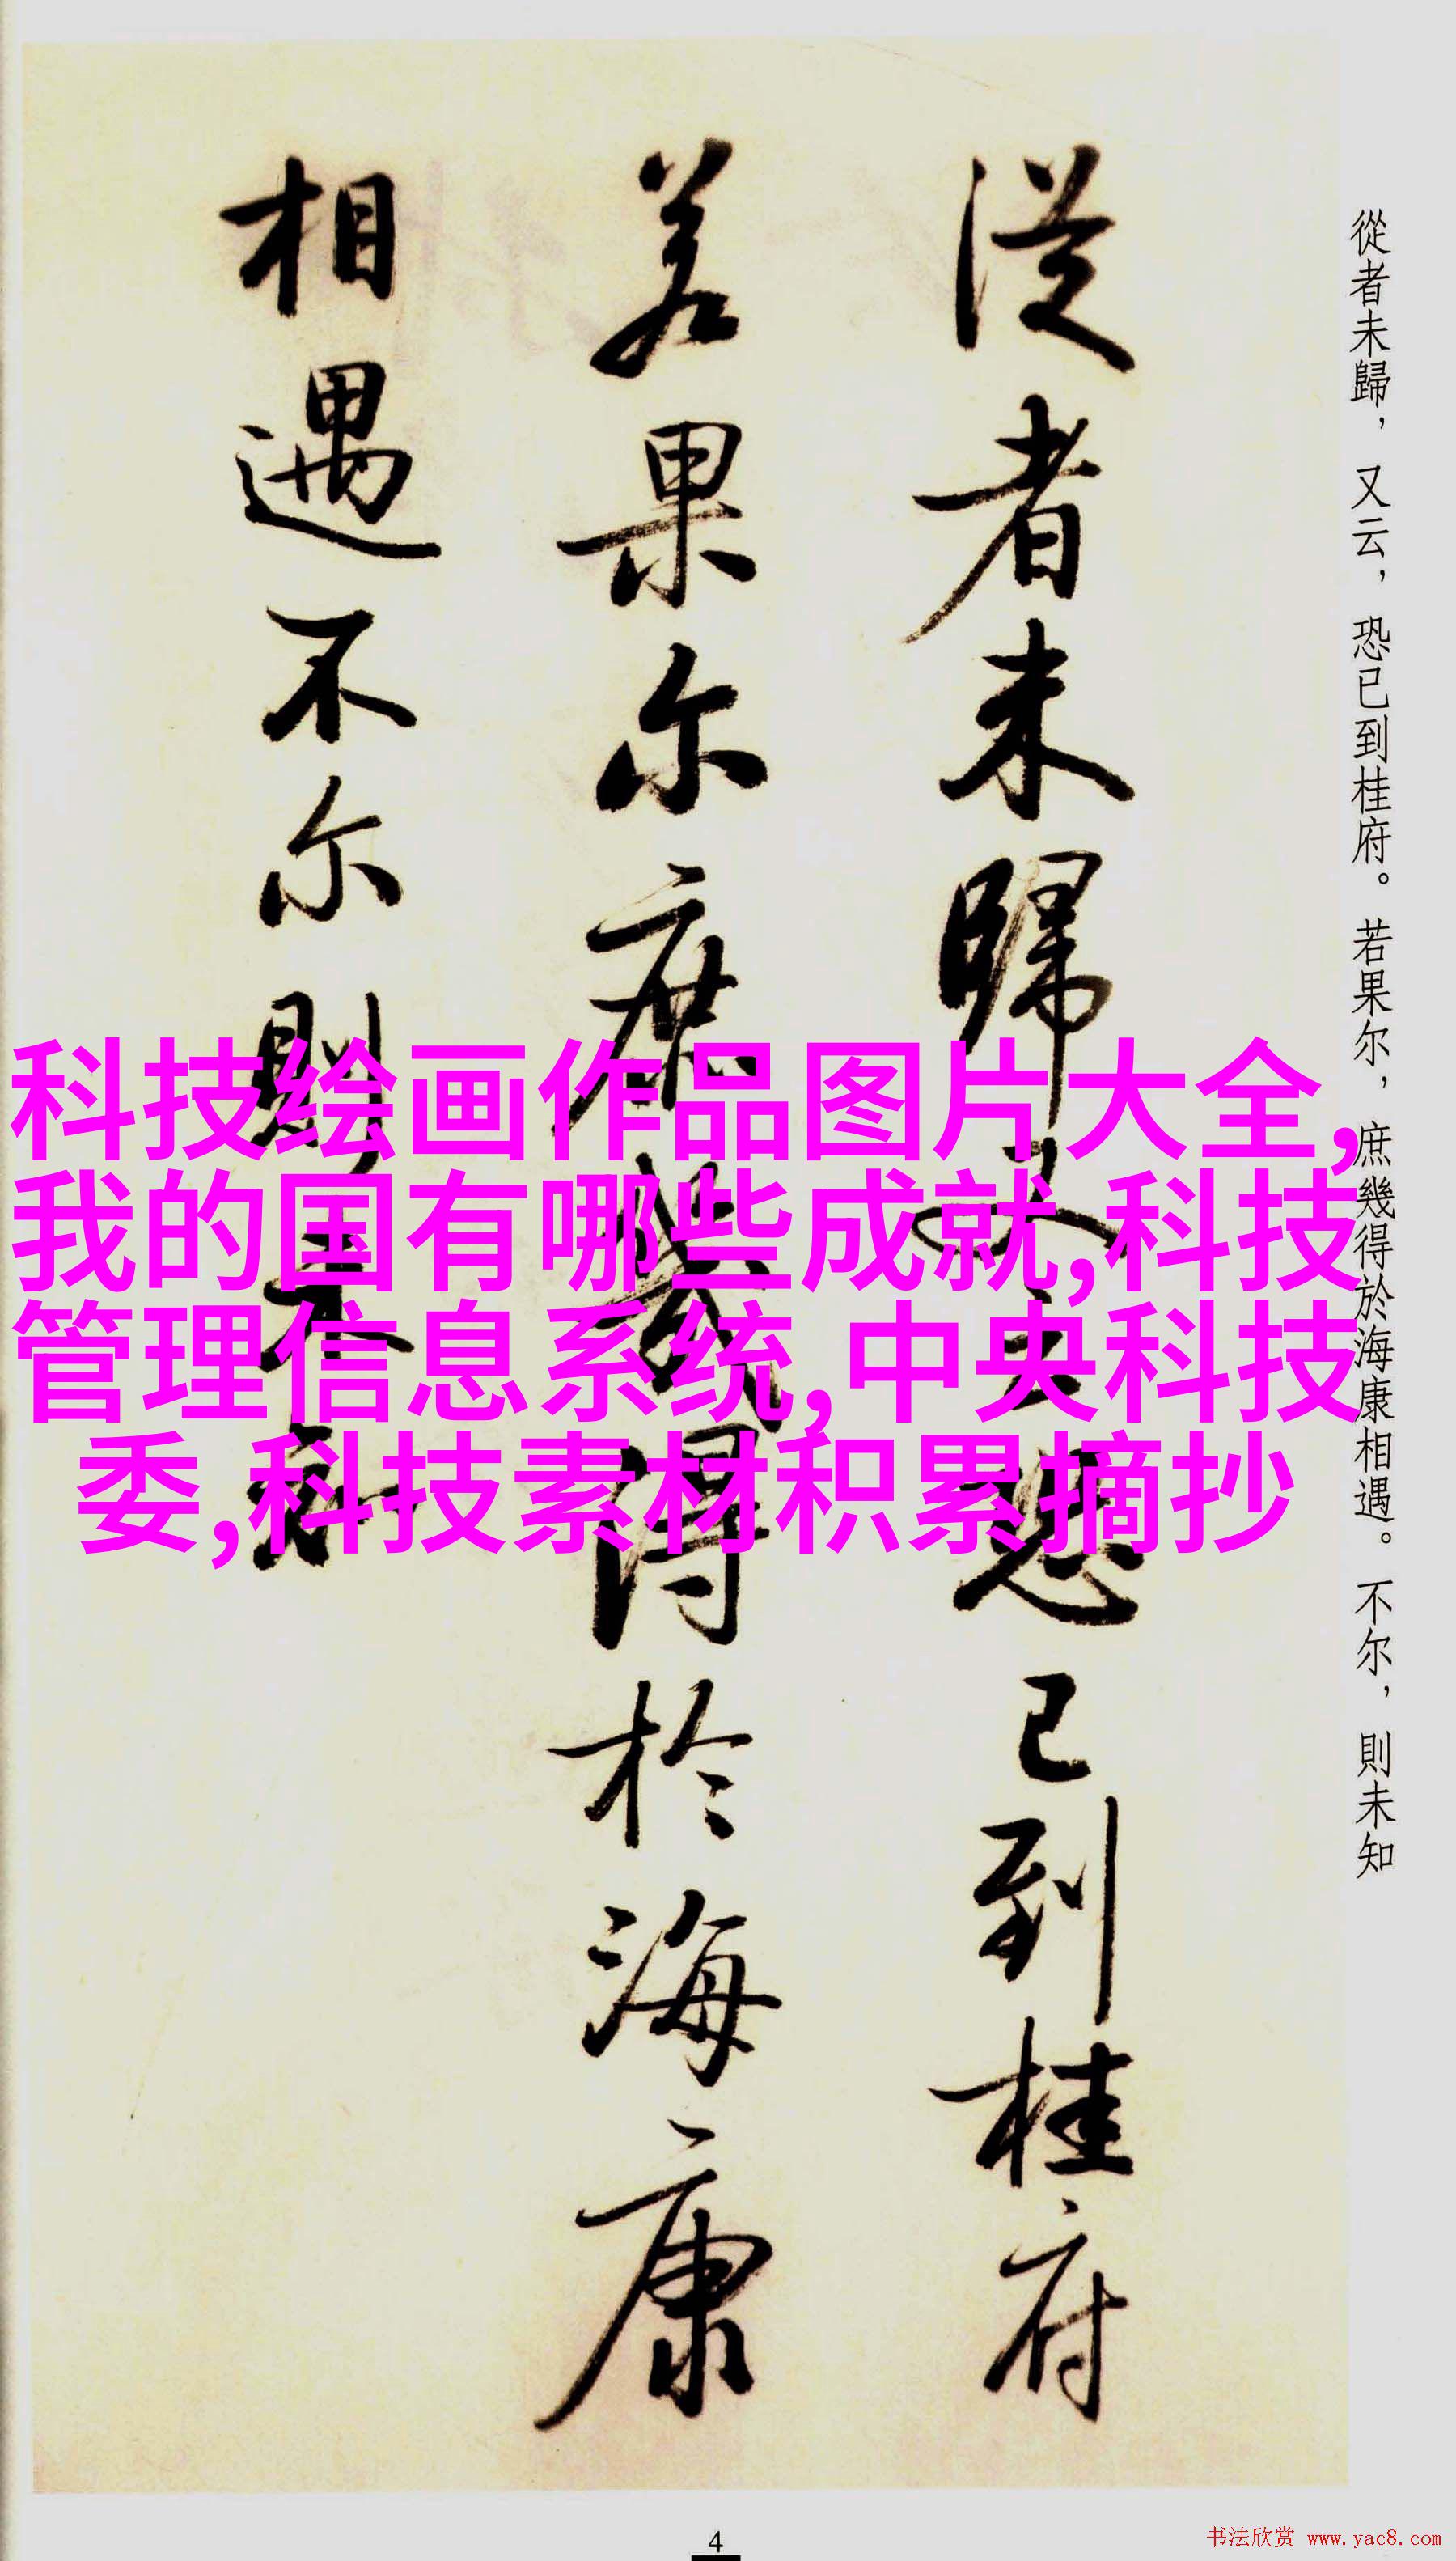 從者未歸，又云，恐已到桂府。若果尔，庶幾得於海康相遇。不尔，則未知
従者未歸又云恐已到桂府
若果尔庶幾得於海康
相遇不尔則未知
科技绘画作品图片大全,
我的国有哪些成就,科技
管理信息系统,中央科技
委,科技素材积累摘抄
4
书法欣赏 www.yac8.com